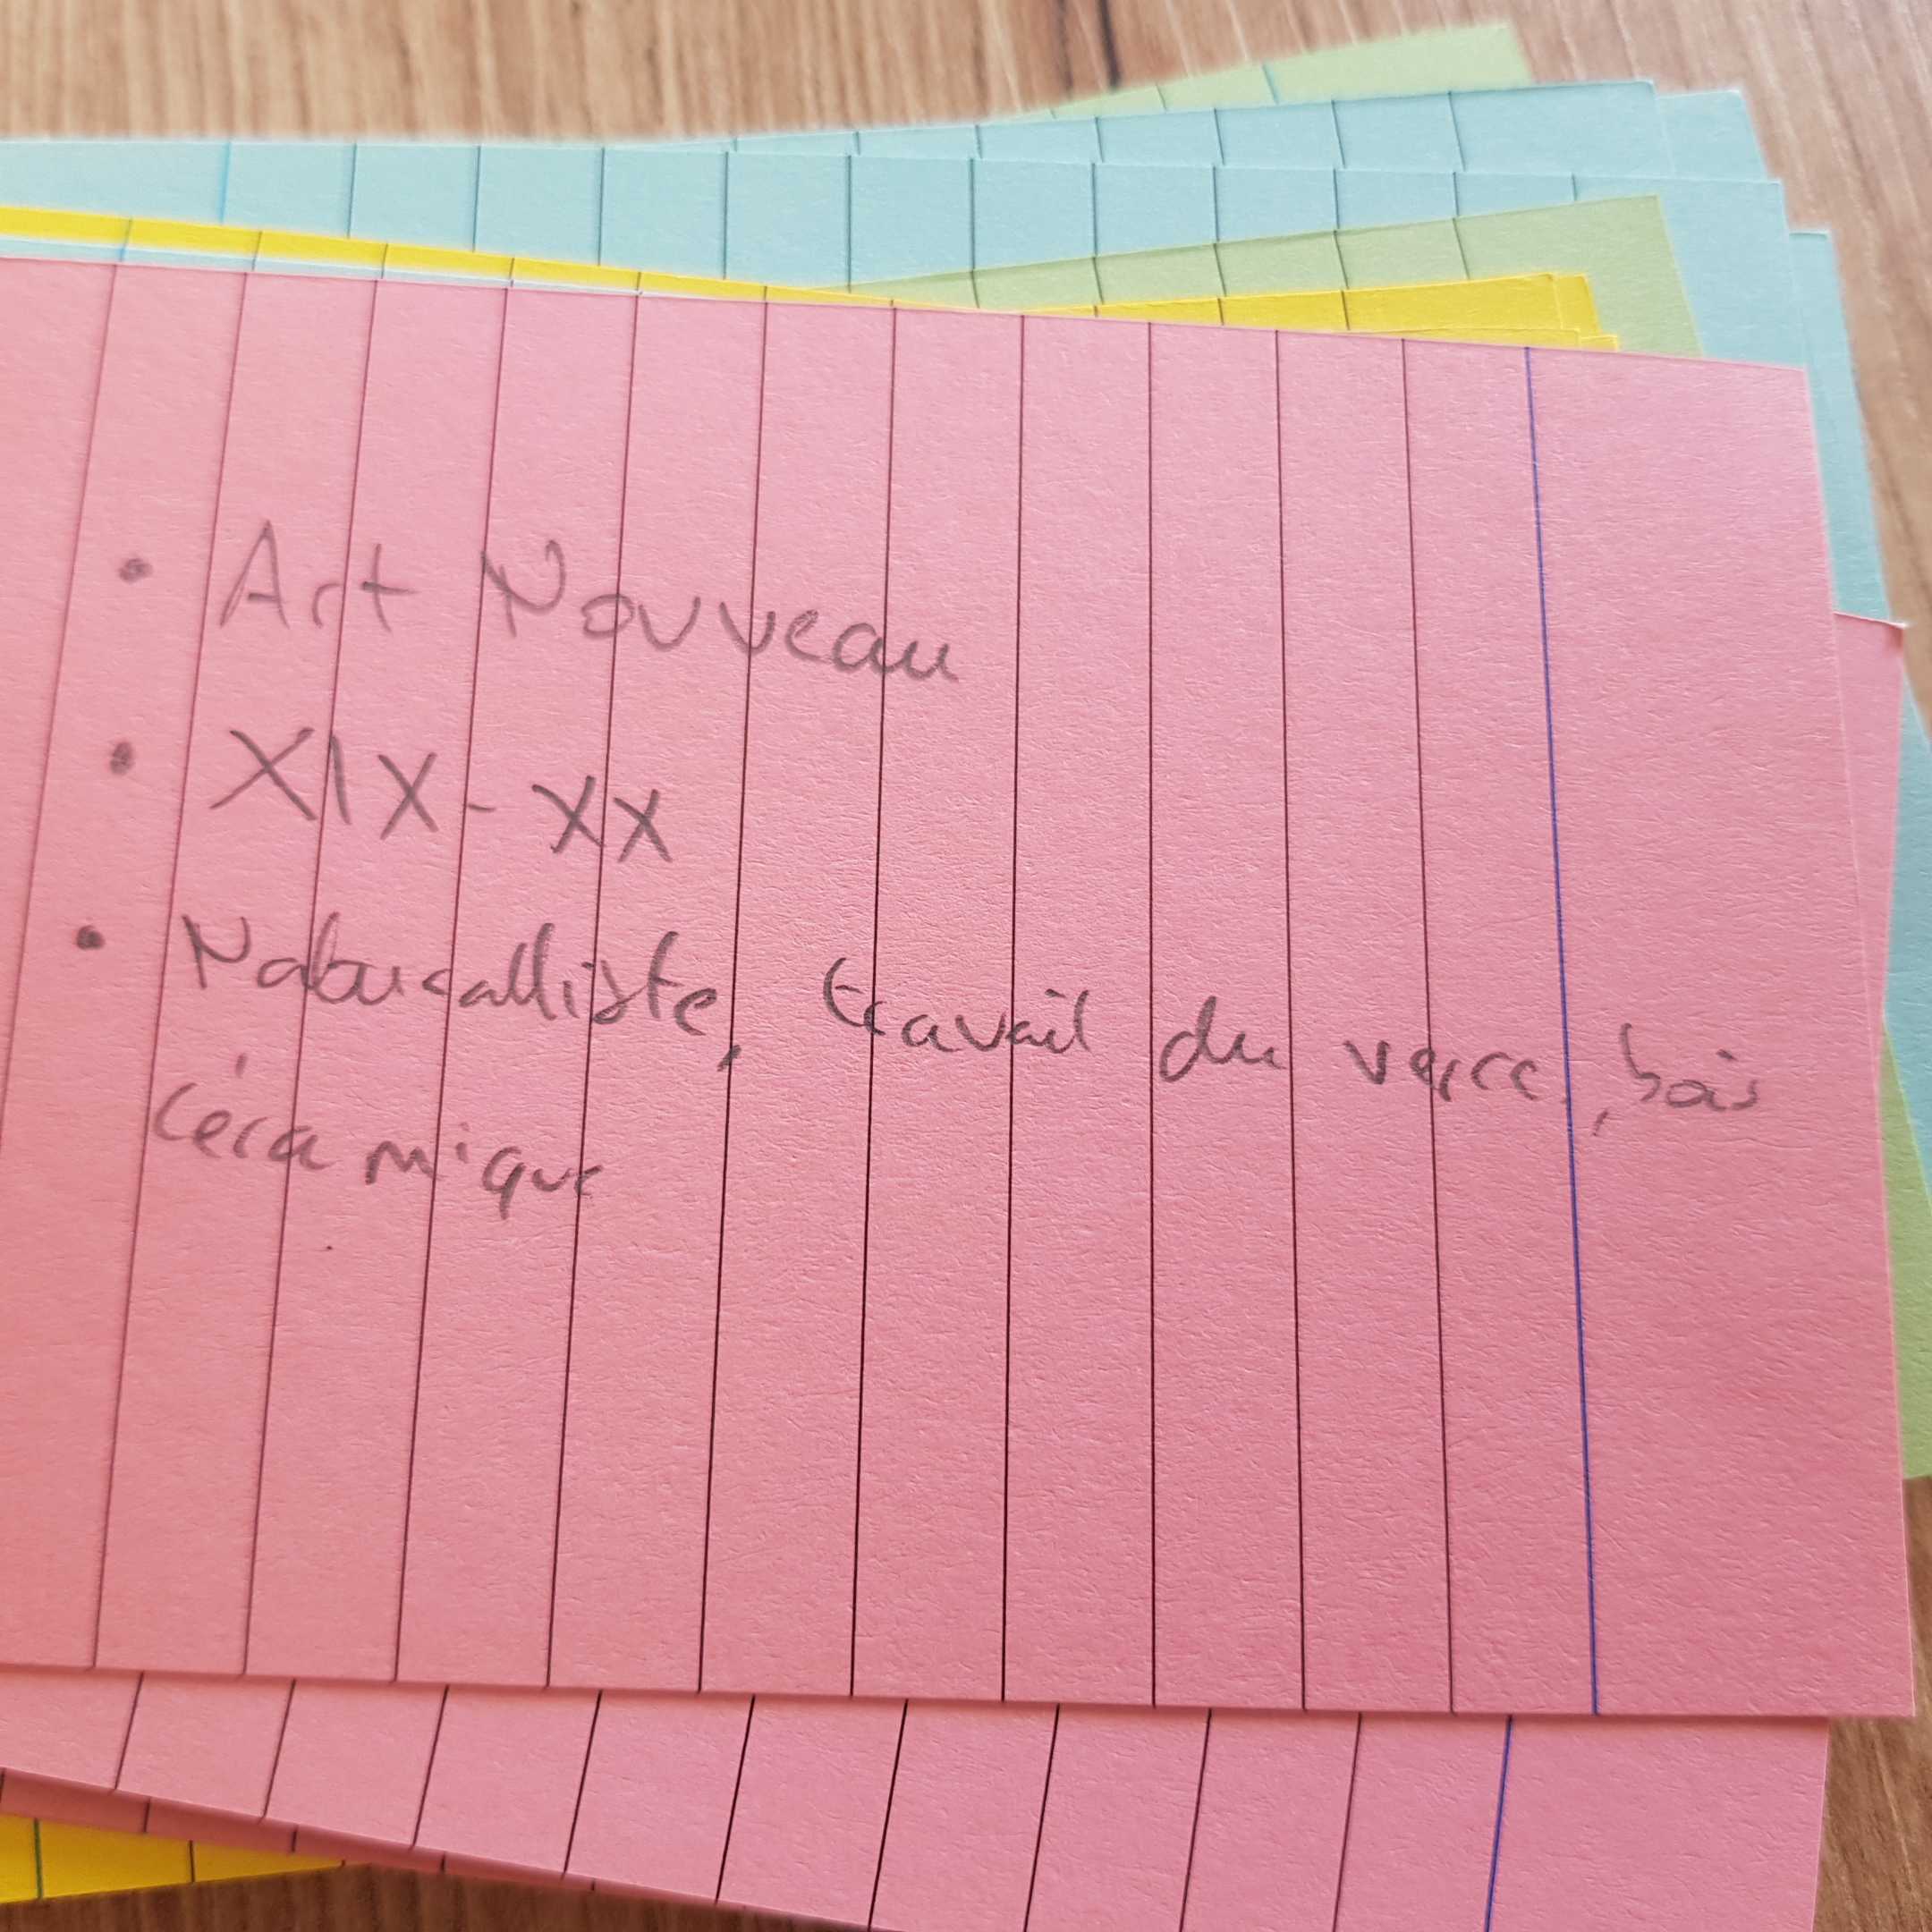 • Art Nouveau
• XIX - XX
• Naturalliste, travail du verre, bois
céramique